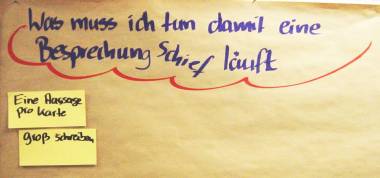 Was muss ich tun damit eine
Besprechung schief läuft
Eine Aussage
pro Karte
groß schreiben